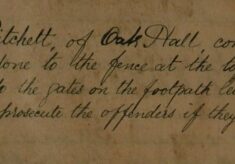 itchett, of Oak Hall, com
done to the fence at the
to the gates on the footpath le
prosecute the offenders if they